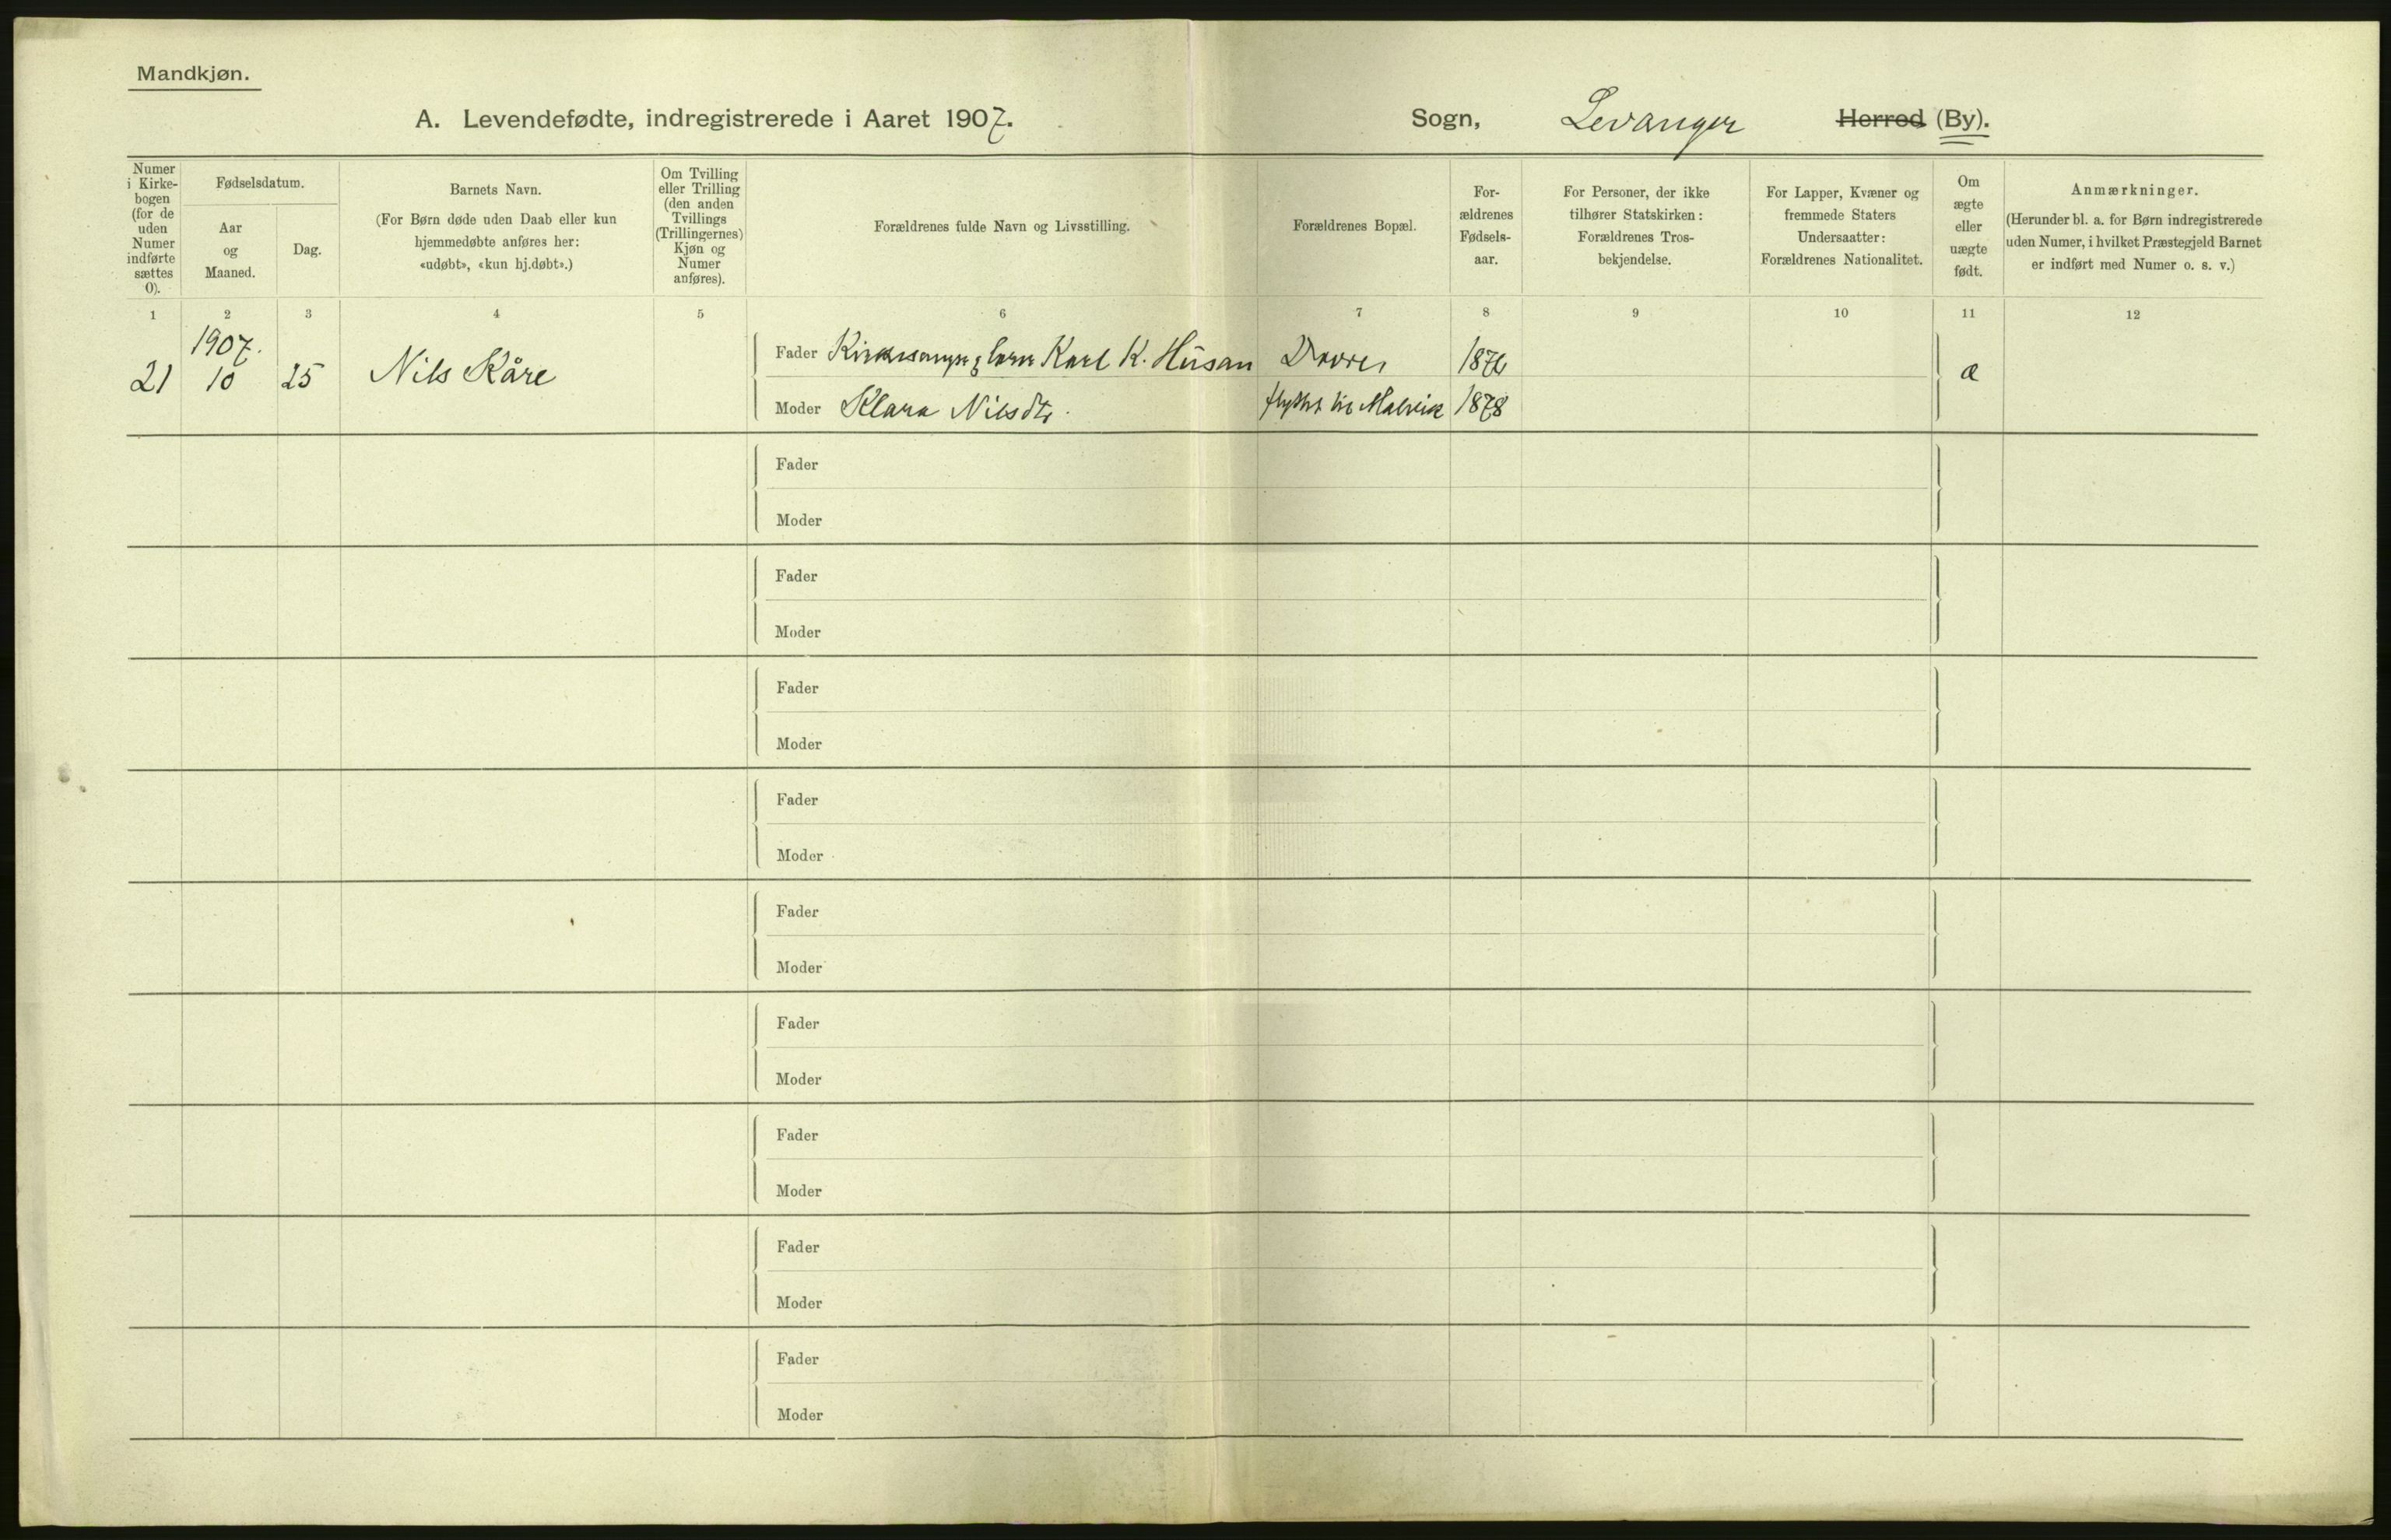 Mandkjøn.
A. Levendefødte, indregistrerede i Aaret 1907.
Sogn, Levanger Herred (By).
Numer
i Kirke-
bogen
(for de
uden
Numer
indførte
sættes
0).
Fødselsdatum.
Aar
og
Maaned.
Dag.
Barnets Navn.
(For Børn døde uden Daab eller kun
hjemmedøbte anføres her:
«udøbt», «kun hj.døbt».)
Om Tvilling
eller Trilling
(den anden
Tvillings
(Trillingernes)
Kjøn og
Numer
anføres).
Forældrenes fulde Navn og Livsstilling.
Forældrenes Bopæl.
For-
ældrenes
Fødsels-
aar.
For Personer, der ikke
tilhører Statskirken:
Forældrenes Tros-
bekjendelse.
For Lapper, Kvæner og
fremmede Staters
Undersaatter:
Forældrenes Nationalitet.
Om
ægte
eller
uægte
født.
Anmærkninger.
(Herunder bl. a. for Børn indregistrerede
uden Numer, i hvilket Præstegjeld Barnet
er indført med Numer o. s. v.)
1 2 3 4 5 6 7 8 9 10 11 12
1907.
21 10 25 Nils Kåre
Fader Kirkesanger & lærer Karl K. Husan
Moder Klara Nilsdtr.
flyttet til Malvik 1878
æ
Fader
Moder
Fader
Moder
Fader
Moder
Fader
Moder
Fader
Moder
Fader
Moder
Fader
Moder
Fader
Moder
Fader
Moder